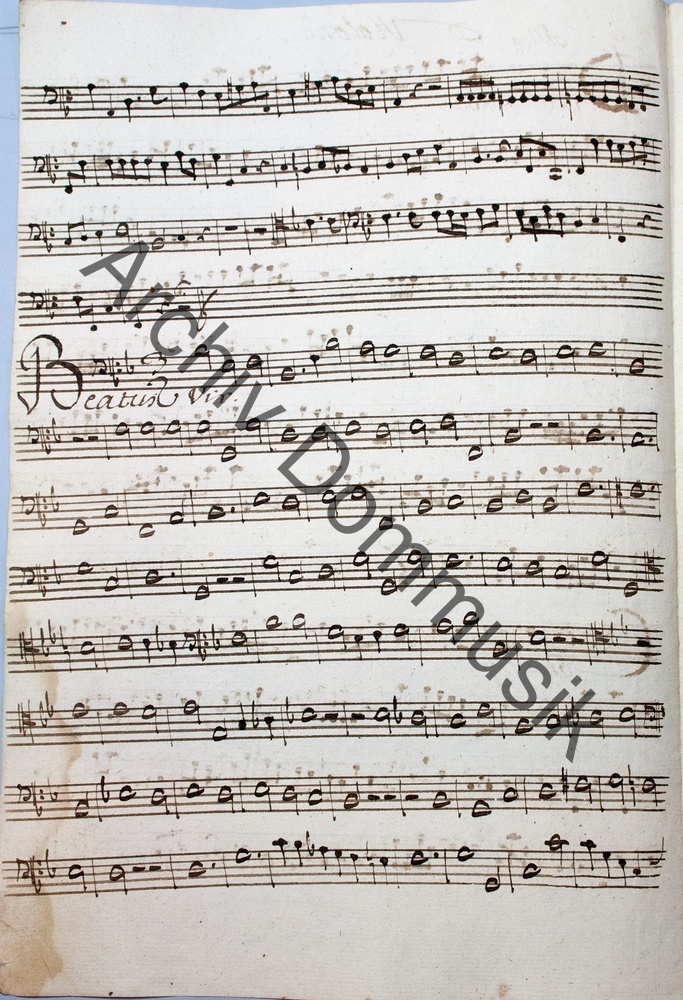 Beatus Vir.
Archiv Dommusik